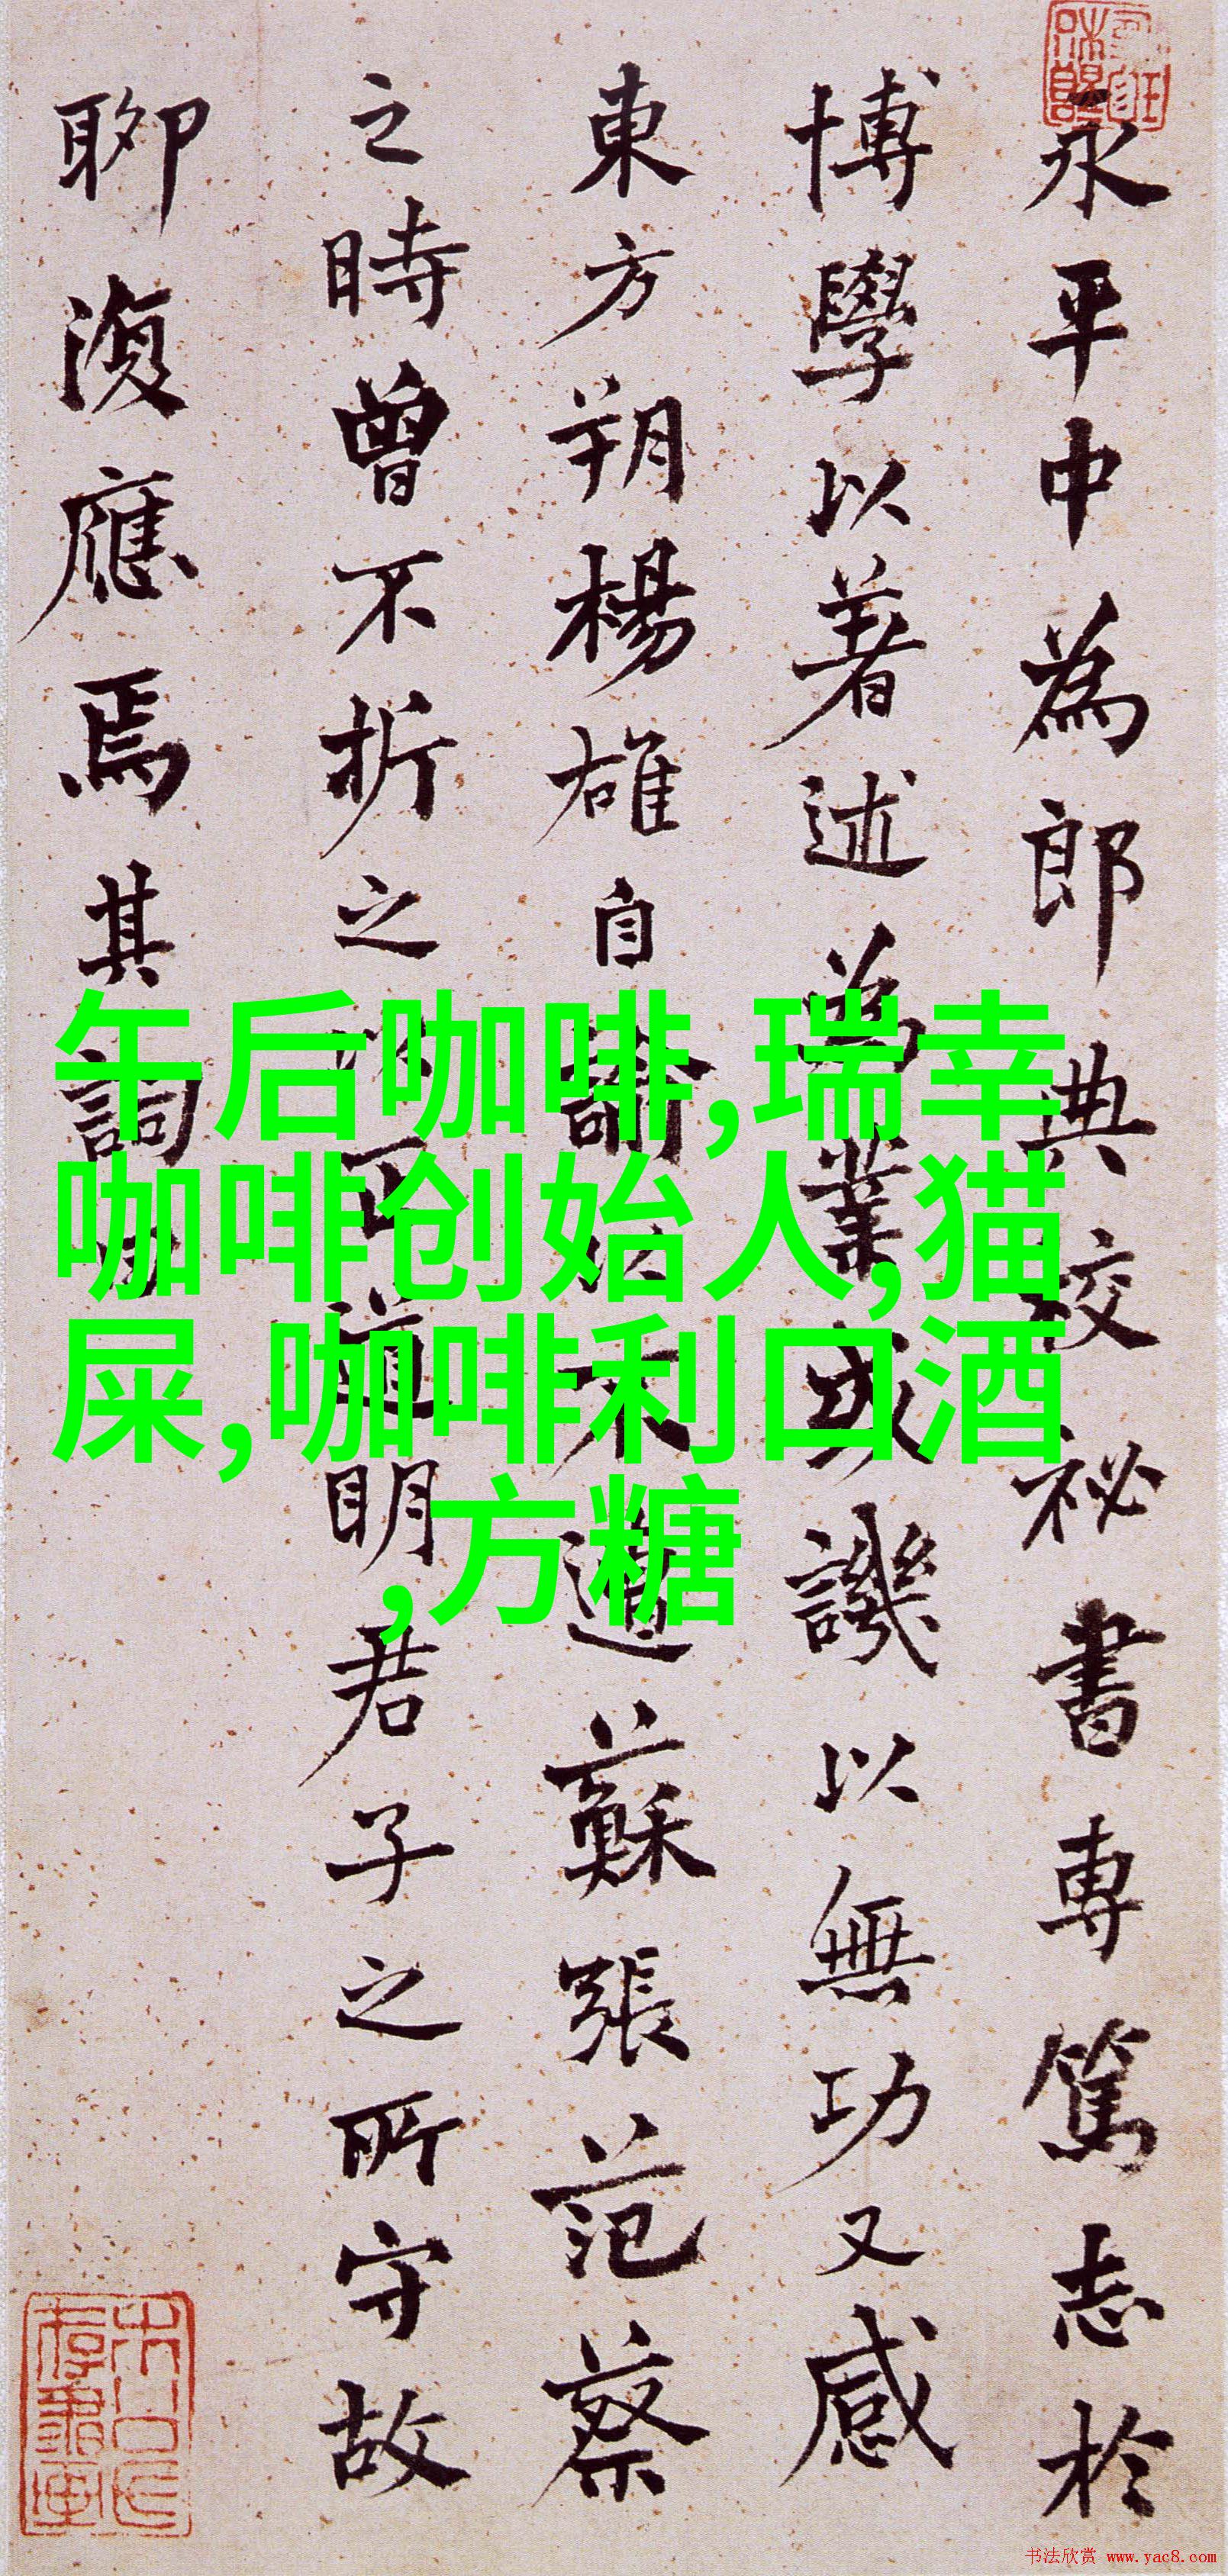 永平中為郎典校祕書專篤志於
博學以著述為業或譏以無功又感
東方朔楊雄自諭以不遭蘇張范蔡
之時曾不折之以正道明君子之所守故
聊復應焉其詞曰
午后咖啡,瑞幸
咖啡创始人,猫
屎,咖啡利口酒
,方糖
书法欣赏 www.yac8.com